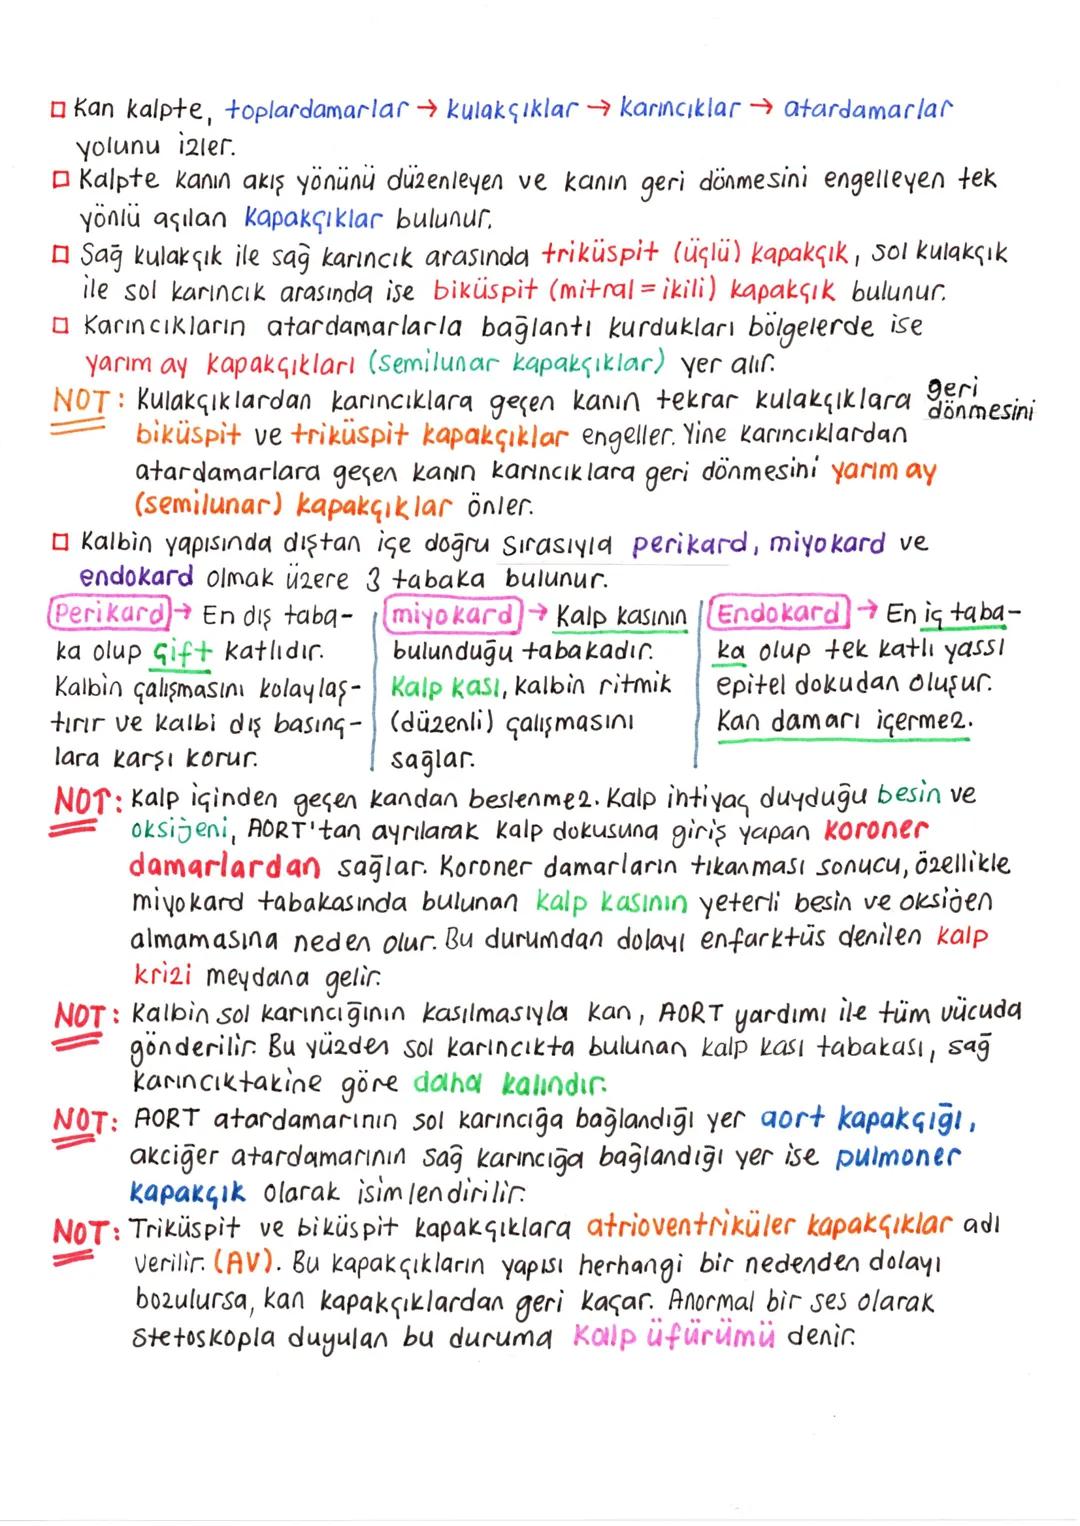 Kan kalpte, toplardamarlar → kulakçıklar → karıncıklar → atardamarlar
yolunu izler.
Kalpte kanın akış yönünü düzenleyen ve kanın geri dönmesini engelleyen tek
yönlü açılan kapakçıklar bulunur.
Sağ kulakçık ile sağ karıncık arasında triküspit (üçlü) kapakçık, sol kulakçık
ile sol karıncık arasında ise biküspit (mitral = ikili) kapakçık bulunur.
Karıncıkların atardamarlarla bağlantı kurdukları bölgelerde ise
yarım ay kapakçıkları (semilunar kapakçıklar) yer alır.
NOT: Kulakçıklardan karıncıklara geçen kanın tekrar kulakçıklara geri dönmesini
biküspit ve triküspit kapakçıklar engeller. Yine karıncıklardan
atardamarlara geçen kanın karıncıklara geri dönmesini yarım ay
(semilunar) kapakçıklar önler.
Kalbin yapısında dıştan içe doğru sırasıyla perikard, miyokard ve
endokard olmak üzere 3 tabaka bulunur.
Perikard → En dış taba-
ka olup çift katlıdır.
Kalbin çalışmasını kolaylaş-
tırır ve kalbi dış basınç-
lara karşı korur.
miyokard → Kalp kasının
bulunduğu tabakadır.
Kalp kası, kalbin ritmik
(düzenli) çalışmasını
sağlar.
Endokard → En iç taba-
ka olup tek katlı yassı
epitel dokudan oluşur.
Kan damarı içermez.
NOT: Kalp içinden geçen kandan beslenmez. Kalp ihtiyaç duyduğu besin ve
oksijeni, AORT'tan ayrılarak kalp dokusuna giriş yapan koroner
damarlardan sağlar. Koroner damarların tıkanması sonucu, özellikle
miyokard tabakasında bulunan kalp kasının yeterli besin ve oksijen
almamasına neden olur. Bu durumdan dolayı enfarktüs denilen kalp
krizi meydana gelir.
NOT: Kalbin sol karıncığının kasılmasıyla kan, AORT yardımı ile tüm vücuda
gönderilir. Bu yüzden sol karıncıkta bulunan kalp kası tabakası, sağ
karıncıktakine göre daha kalındır.
NOT: AORT atardamarının sol karıncığa bağlandığı yer aort kapakçığı,
akciğer atardamarının sağ karıncığa bağlandığı yer ise pulmoner
kapakçık olarak isimlendirilir.
NOT: Triküspit ve biküspit kapakçıklara atrioventriküler kapakçıklar adı
verilir. (AV). Bu kapakçıkların yapısı herhangi bir nedenden dolayı
bozulursa, kan kapakçıklardan geri kaçar. Anormal bir ses olarak
stetoskopla duyulan bu duruma kalp üfürümü denir.